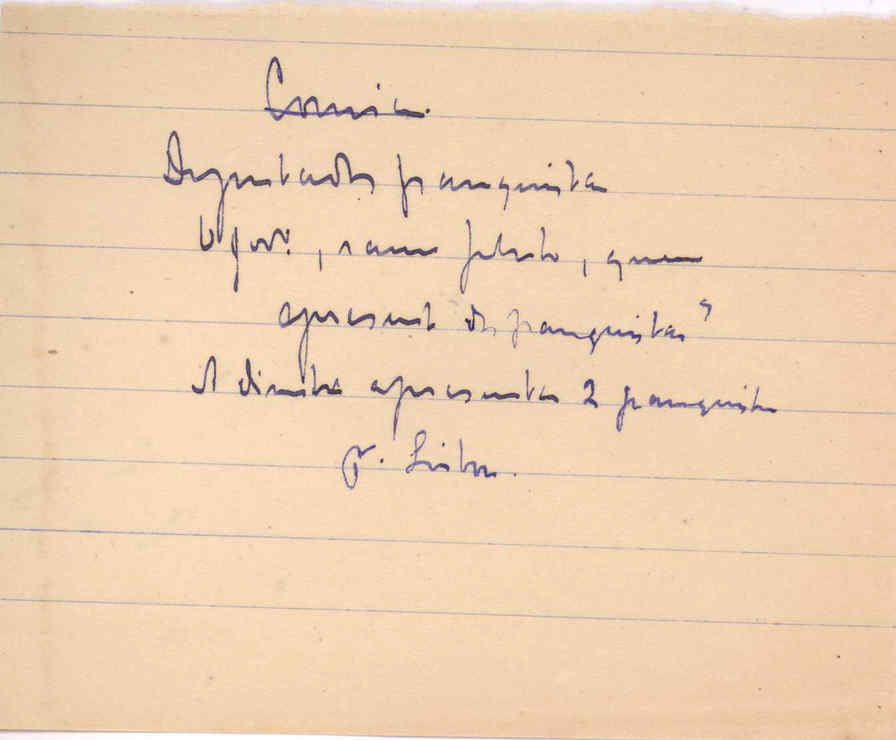 Deputados franquistas
O gov.º, , quem
apresenta os franquistas?
A direita apresenta 2 franquistas
p. Lisboa.